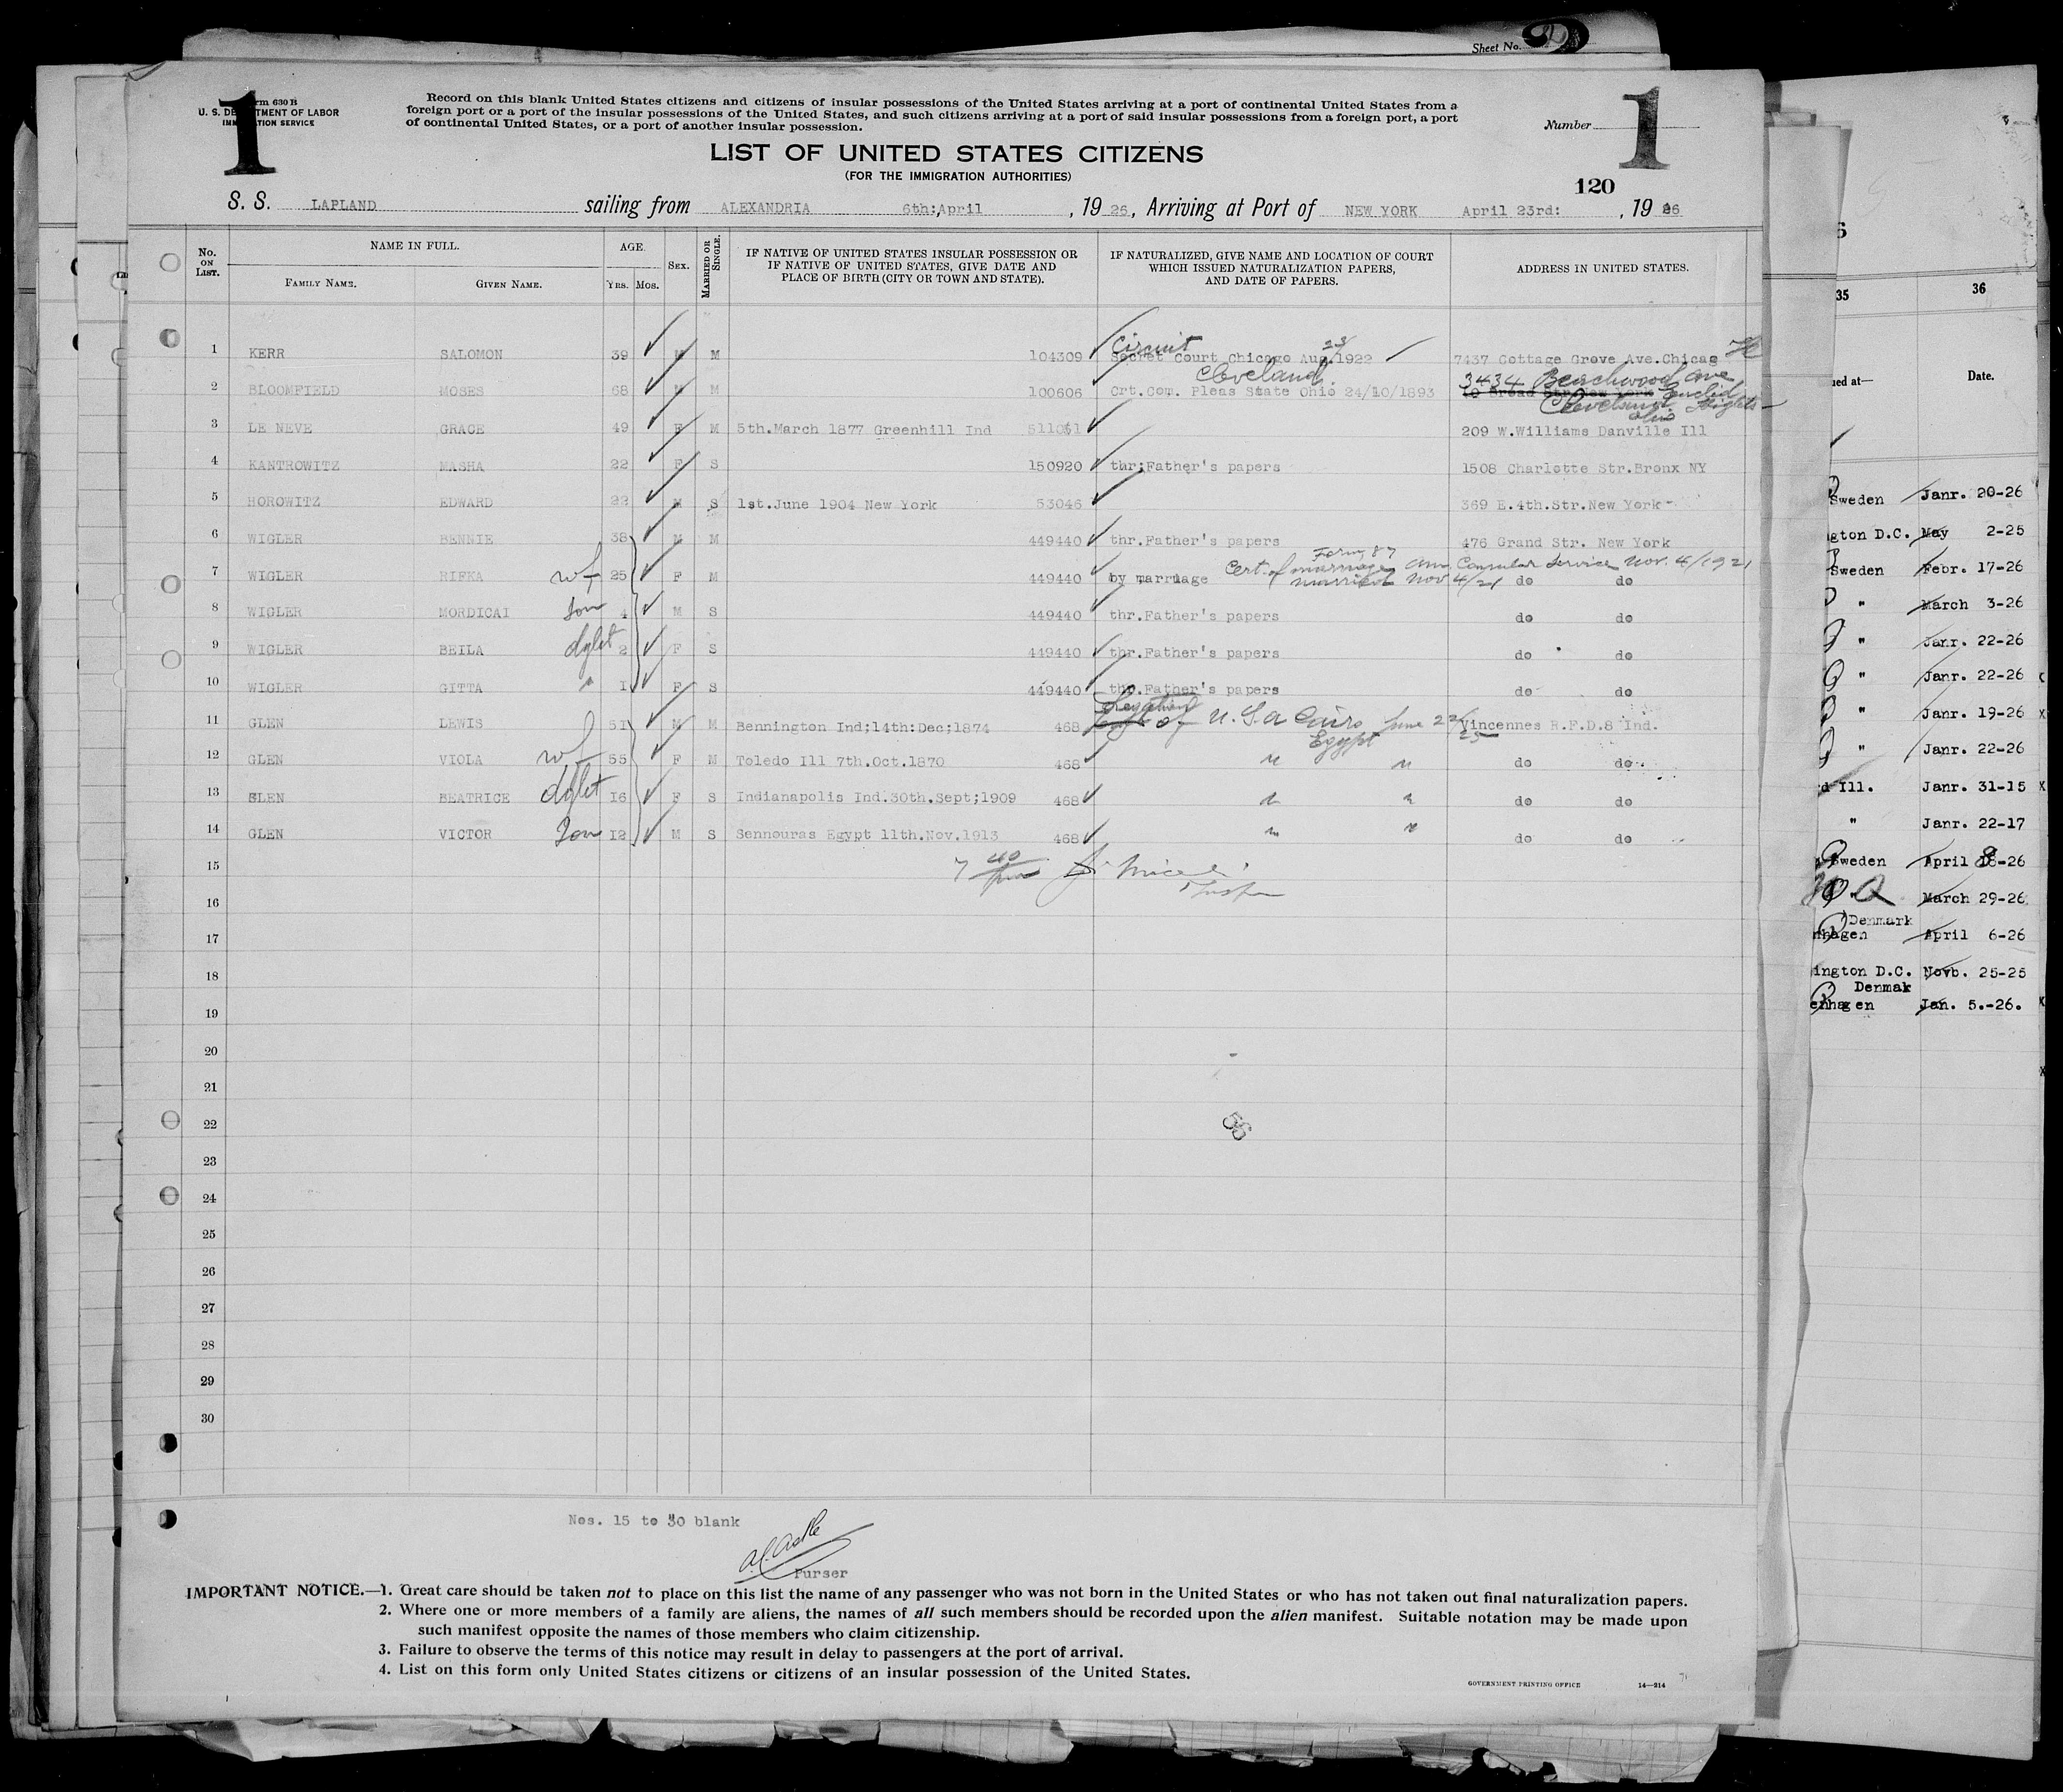 Sheet No.
1
Form 630 B
U. S. DEPARTMENT OF LABOR
IMMIGRATION SERVICE
Record on this blank United States citizens and citizens of insular possessions of the United States arriving at a port of continental United States from a
foreign port or a port of the insular possessions of the United States, and such citizens arriving at a port of said insular possessions from a foreign port, a port
of continental United States, or a port of another insular possession.
Number 1
LIST OF UNITED STATES CITIZENS
(FOR THE IMMIGRATION AUTHORITIES)
120
S. S. LAPLAND sailing from ALEXANDRIA 6th:April , 19 26, Arriving at Port of NEW YORK April 23rd: , 19 26
No. ON LIST. NAME IN FULL. AGE. SEX. MARRIED OR SINGLE. IF NATIVE OF UNITED STATES INSULAR POSSESSION OR IF NATIVE OF UNITED STATES, GIVE DATE AND PLACE OF BIRTH (CITY OR TOWN AND STATE). IF NATURALIZED, GIVE NAME AND LOCATION OF COURT WHICH ISSUED NATURALIZATION PAPERS, AND DATE OF PAPERS. ADDRESS IN UNITED STATES.
FAMILY NAME. GIVEN NAME. YRS. MOS.
Circuit 23
1 KERR SALOMON 39 M M 104309 Secret Court Chicago Aug.1922 7437 Cottage Grove Ave.Chicag
Cleveland. 3434 Beachwood Ave
2 BLOOMFIELD MOSES 68 M M 100606 Crt.Com. Pleas State Ohio 24/10/1893 10 Broad Str.New York Euclid
Cleveland Heights
Ohio
3 LE NEVE GRACE 49 F M 5th.March 1877 Greenhill Ind 209 W.Williams Danville Ill
4 KANTROWITZ MASHA 22 F S 150920 thr;Father's papers 1508 Charlotte Str.Bronx NY
5 HOROWITZ EDWARD 22 M S 1st.June 1904 New York 53046 369 E.4th.Str.New York
6 WIGLER BENNIE 38 M M 449440 thr.Father's papers 476 Grand Str. New York
Form 87
7 WIGLER RIFKA wf 25 F M 449440 by marriage Cert. of marriage Am. Consular Service Nov. 4/1921
married Nov 4/21 do do
8 WIGLER MORDICAI Son 4 M S 449440 thr.Father's papers do do
9 WIGLER BEILA dght 2 F S 449440 thr.Father's papers do do
10 WIGLER GITTA " 1 F S 449440 thr.Father's papers do do
Legation
11 GLEN LEWIS 51 M M Bennington Ind;14th:Dec;1874 468 of U.S.A Cairo June 22/25 Vincennes R.F.D.8 Ind.
Egypt
12 GLEN VIOLA wf 55 F M Toledo Ill 7th.Oct.1870 468 " " do do
13 GLEN BEATRICE dght 16 F S Indianapolis Ind.30th.Sept;1909 468 " " do do
14 GLEN VICTOR Son 12 M S Sennouras Egypt 11th.Nov.1913 468 " " do do
15
16
17
18
19
20
21
22
23
24
25
26
27
28
29
30
56
Nos. 15 to 30 blank
Purser
IMPORTANT NOTICE.—1. Great care should be taken not to place on this list the name of any passenger who was not born in the United States or who has not taken out final naturalization papers.
2. Where one or more members of a family are aliens, the names of all such members should be recorded upon the alien manifest. Suitable notation may be made upon
such manifest opposite the names of those members who claim citizenship.
3. Failure to observe the terms of this notice may result in delay to passengers at the port of arrival.
4. List on this form only United States citizens or citizens of an insular possession of the United States.
GOVERNMENT PRINTING OFFICE 14—214
35 36
ued at— Date.
Sweden Janr. 20-26
gton D.C. May 2-25
Sweden Febr. 17-26
" March 3-26
" Janr. 22-26
" Janr. 22-26
" Janr. 19-26
" Janr. 22-26
d Ill. Janr. 31-15
" Janr. 22-17
Sweden April 8-26
March 29-26
Denmark
nhagen April 6-26
ington D.C. Novb. 25-25
Denmak
enhagen Jan. 5.-26.